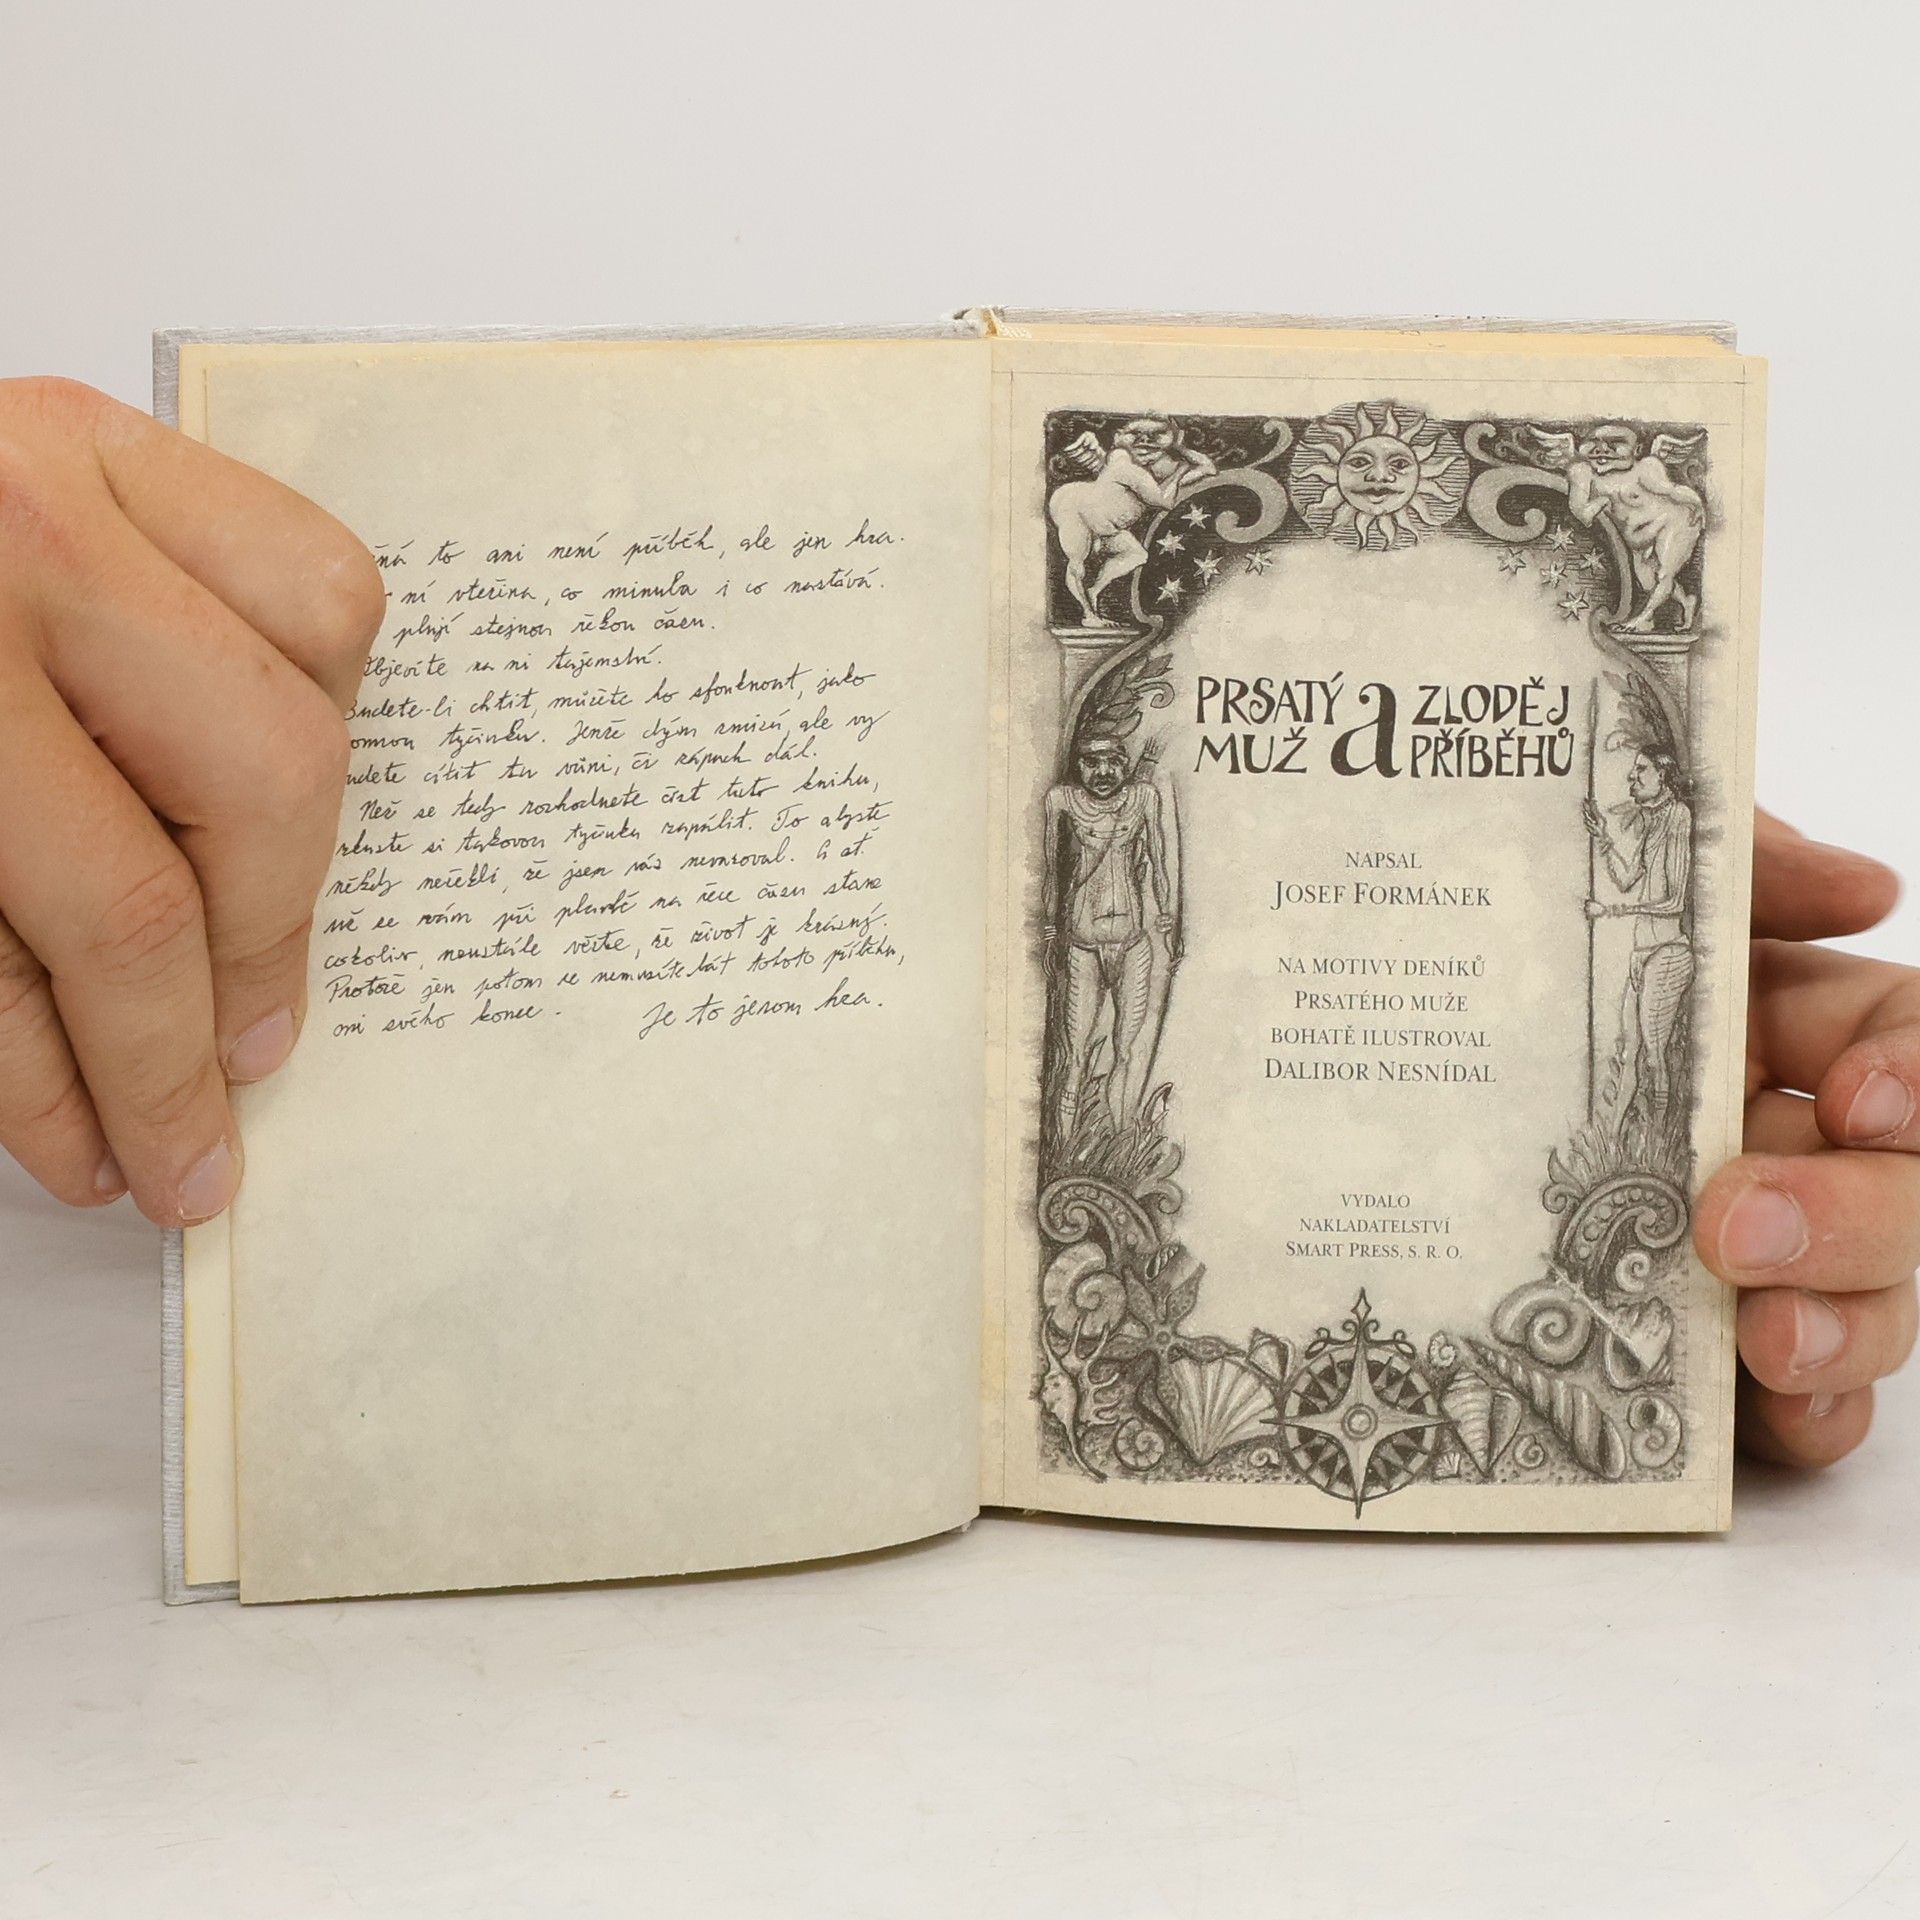 to ani není příběh, ale jen hra.
ní vteřina, co minula i co nastává.
plují stejnou řekou času.
Objevíte na ní tajemství.
Budete-li chtít, můžete ho sfouknout, jako
tyčinku. Jenže dým zmizí, ale vy
budete cítit tu vůni, či zápach dál.
Než se tedy rozhodnete číst tuto knihu,
zkuste si takovou tyčinku zapálit. To abyste
někdy neřekli, že jsem vás nevaroval. A ať
se vám při plavbě na řece času stane
cokoliv, neustále věřte, že život je krásný.
Protože jen potom se nemusíte bát tohoto příběhu,
ani svého konce. Je to jenom hra.
PRSATÝ MUŽ a ZLODĚJ PŘÍBĚHŮ
NAPSAL
JOSEF FORMÁNEK
NA MOTIVY DENÍKŮ
PRSATÉHO MUŽE
BOHATĚ ILUSTROVAL
DALIBOR NESNÍDAL
VYDALO
NAKLADATELSTVÍ
SMART PRESS, S. R. O.